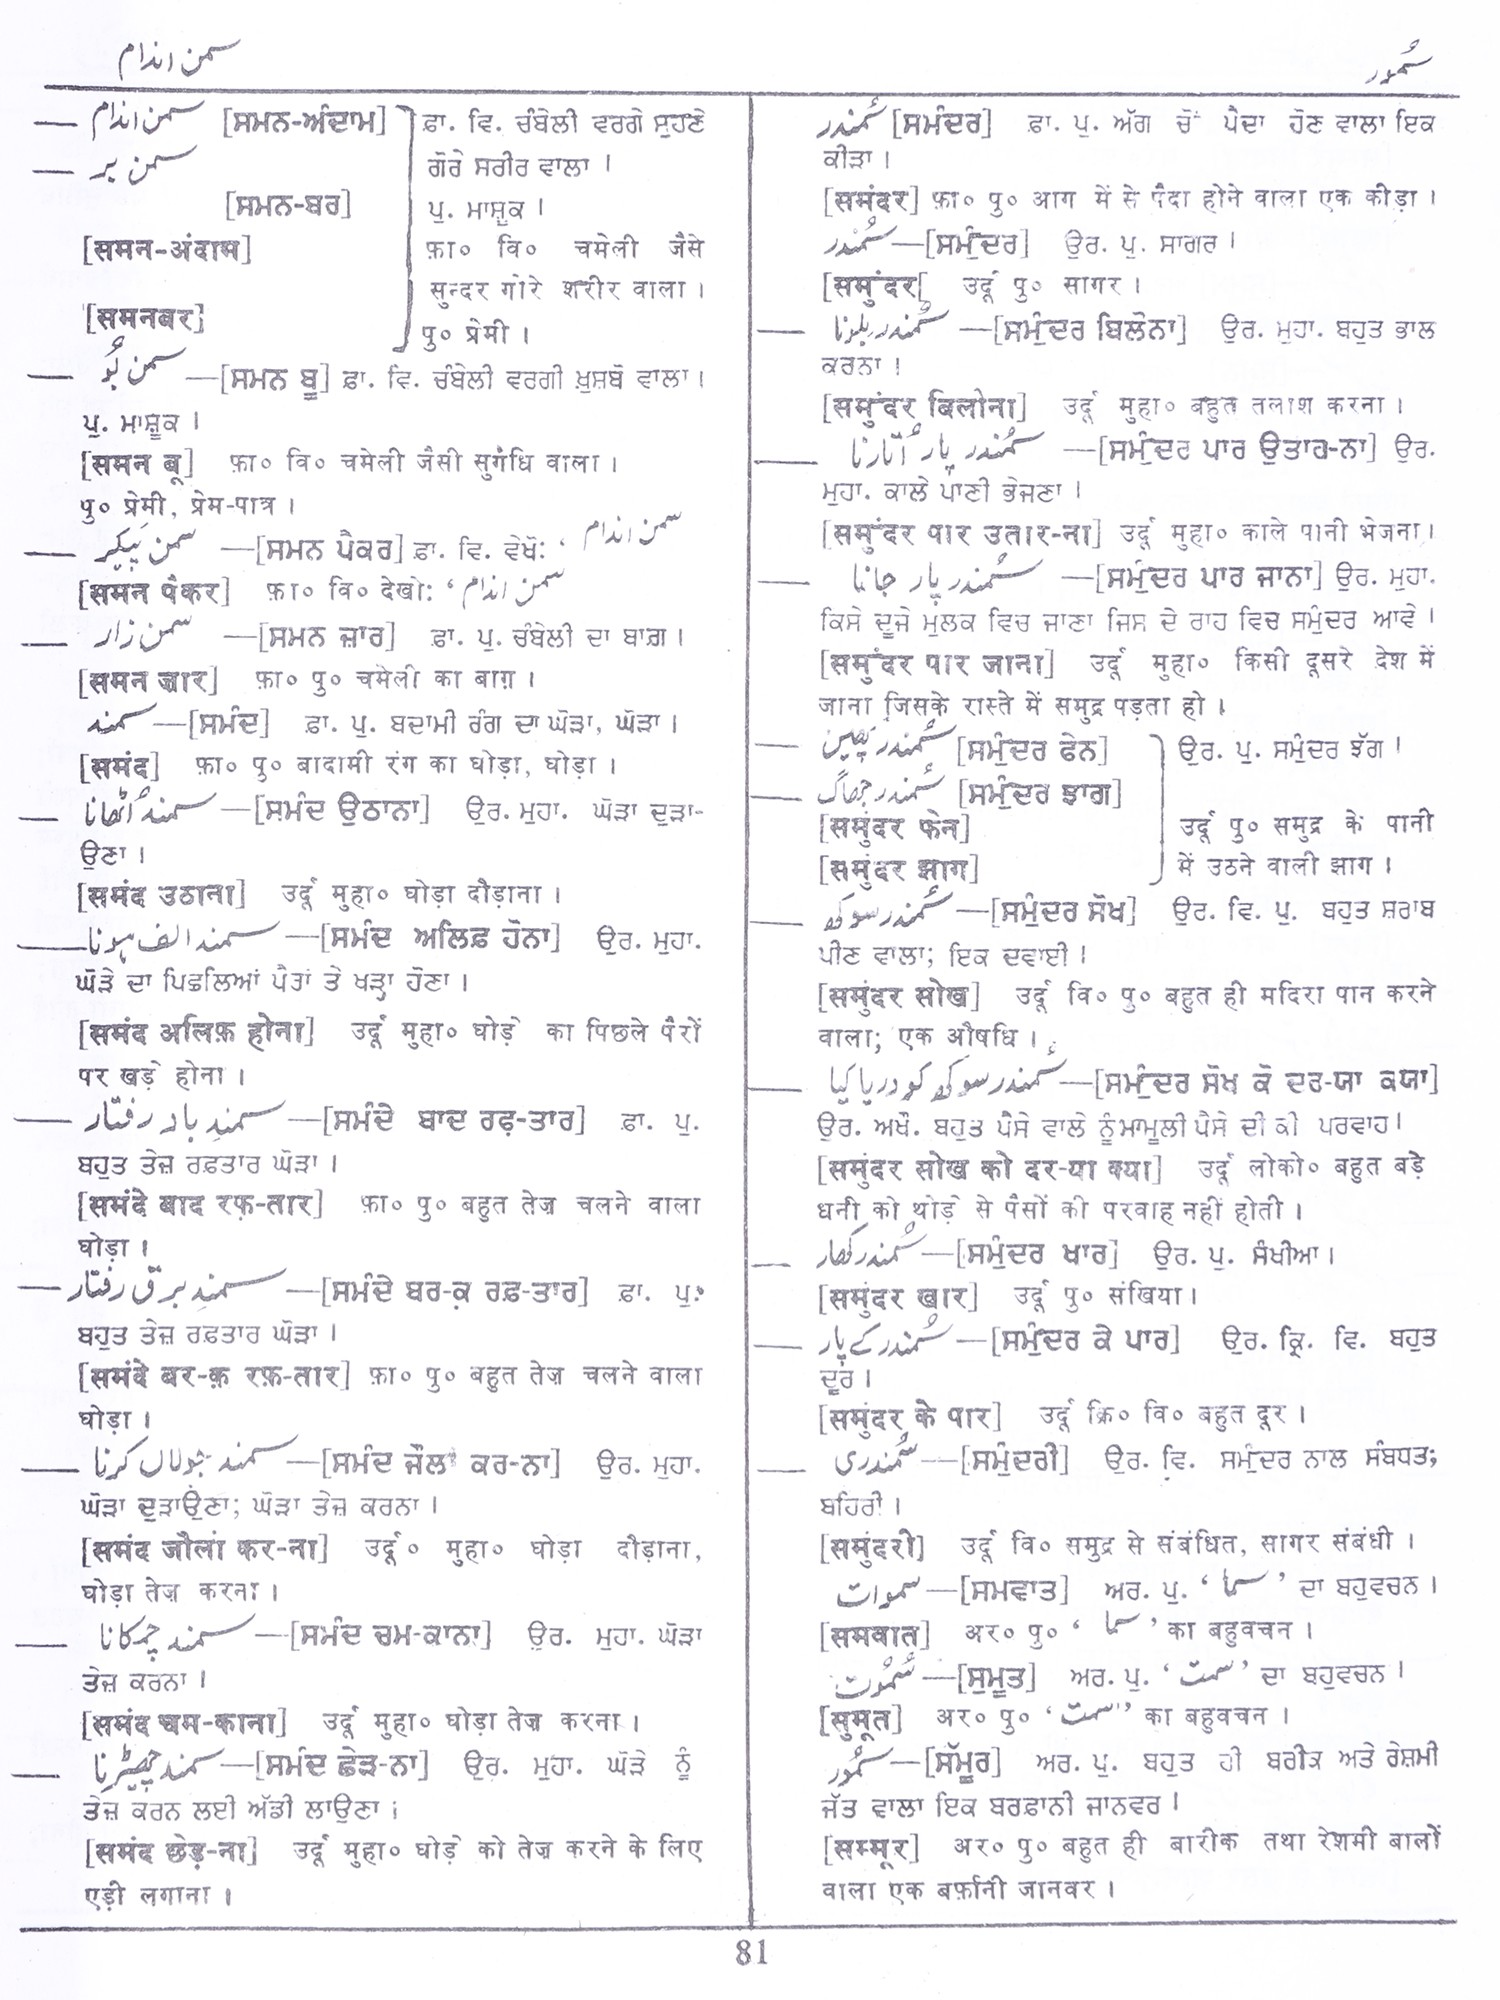 سمن اندام
سمّور
سمن اندام [ਸਮਨ-ਅੰਦਾਮ] ਫ਼ਾ. ਵਿ. ਚੰਬੇਲੀ ਵਰਗੇ ਸੁਹਣੇ
سمن بر ਗੋਰੇ ਸਰੀਰ ਵਾਲਾ ।
[ਸਮਨ-ਬਰ] ਪੁ. ਮਾਸ਼ੂਕ ।
[समन-अंदाम] फ़ा० वि० चमेली जैसे
सुन्दर गोरे शरीर वाला ।
[समनबर] पु० प्रेमी ।
سمن بُو —[ਸਮਨ ਬੂ] ਫ਼ਾ. ਵਿ. ਚੰਬੇਲੀ ਵਰਗੀ ਖ਼ੁਸ਼ਬੋ ਵਾਲਾ ।
ਪੁ. ਮਾਸ਼ੂਕ ।
[समन बू] फ़ा० वि० चमेली जैसी सुगंधि वाला ।
पु० प्रेमी, प्रेम-पात्र ।
سمن پَیکر —[ਸਮਨ ਪੈਕਰ] ਫ਼ਾ. ਵਿ. ਵੇਖੋ: ‘ سمن اندام
[समन पैकर] फ़ा० वि० देखो: ‘ سمن اندام
سمن زار —[ਸਮਨ ਜ਼ਾਰ] ਫ਼ਾ. ਪੁ. ਚੰਬੇਲੀ ਦਾ ਬਾਗ਼ ।
[समन ज़ार] फ़ा० पु० चमेली का बाग़ ।
سمند —[ਸਮੰਦ] ਫ਼ਾ. ਪੁ. ਬਦਾਮੀ ਰੰਗ ਦਾ ਘੋੜਾ, ਘੋੜਾ ।
[समंद] फ़ा० पु० बादामी रंग का घोड़ा, घोड़ा ।
سمند اُٹھانا —[ਸਮੰਦ ਉਠਾਨਾ] ਉਰ. ਮੁਹਾ. ਘੋੜਾ ਦੁੜਾ-
ਉਣਾ ।
[समंद उठाना] उर्दू मुहा० घोड़ा दौड़ाना ।
سمند الف ہونا —[ਸਮੰਦ ਅਲਿਫ਼ ਹੋਨਾ] ਉਰ. ਮੁਹਾ.
ਘੋੜੇ ਦਾ ਪਿਛਲਿਆਂ ਪੈਰਾਂ ਤੇ ਖੜ੍ਹਾ ਹੋਣਾ ।
[समंद अलिफ़ होना] उर्दू मुहा० घोड़े का पिछले पैरों
पर खड़े होना ।
سمندِ باد رفتار —[ਸਮੰਦੇ ਬਾਦ ਰਫ਼-ਤਾਰ] ਫ਼ਾ. ਪੁ.
ਬਹੁਤ ਤੇਜ਼ ਰਫ਼ਤਾਰ ਘੋੜਾ ।
[समंदे बाद रफ़-तार] फ़ा० पु० बहुत तेज़ चलने वाला
घोड़ा ।
سمندِ برق رفتار —[ਸਮੰਦੇ ਬਰ-ਕ਼ ਰਫ਼-ਤਾਰ] ਫ਼ਾ. ਪੁ.
ਬਹੁਤ ਤੇਜ਼ ਰਫ਼ਤਾਰ ਘੋੜਾ ।
[समंदे बर-क़ रफ़-तार] फ़ा० पु० बहुत तेज़ चलने वाला
घोड़ा ।
سمند جَولاں کرنا —[ਸਮੰਦ ਜੌਲਾਂ ਕਰ-ਨਾ] ਉਰ. ਮੁਹਾ.
ਘੋੜਾ ਦੁੜਾਉਣਾ; ਘੋੜਾ ਤੇਜ਼ ਕਰਨਾ ।
[समंद जौलां कर-ना] उर्दू ० मुहा० घोड़ा दौड़ाना,
घोड़ा तेज़ करना ।
سمند چمکانا —[ਸਮੰਦ ਚਮ-ਕਾਨਾ] ਉਰ. ਮੁਹਾ. ਘੋੜਾ
ਤੇਜ਼ ਕਰਨਾ ।
[समंद चम-काना] उर्दू मुहा० घोड़ा तेज़ करना ।
سمند چھیڑنا —[ਸਮੰਦ ਛੇੜ-ਨਾ] ਉਰ. ਮੁਹਾ. ਘੋੜੇ ਨੂੰ
ਤੇਜ਼ ਕਰਨ ਲਈ ਅੱਡੀ ਲਾਉਣਾ ;
[समंद छेड़-ना] उर्दू मुहा० घोड़े को तेज़ करने के लिए
एड़ी लगाना ।
سمندر [ਸਮੰਦਰ] ਫ਼ਾ. ਪੁ. ਅੱਗ ਚੋਂ ਪੈਦਾ ਹੋਣ ਵਾਲਾ ਇਕ
ਕੀੜਾ ।
[समंदर] फ़ा० पु० आग में से पैदा होने वाला एक कीड़ा ।
سمُندر —[ਸਮੁੰਦਰ] ਉਰ. ਪੁ. ਸਾਗਰ ।
[समुंदर[ उर्दू पु० सागर ।
سمُندر بلونا —[ਸਮੁੰਦਰ ਬਿਲੋਨਾ] ਉਰ. ਮੁਹਾ. ਬਹੁਤ ਭਾਲ
ਕਰਨਾ ।
[समुंदर बिलोना] उर्दू मुहा० बहुत तलाश करना ।
سمُندر پار اُتارنا —[ਸਮੁੰਦਰ ਪਾਰ ਉਤਾਰ-ਨਾ] ਉਰ.
ਮੁਹਾ. ਕਾਲੇ ਪਾਣੀ ਭੇਜਣਾ ।
[समुंदर पार उतार-ना] उर्दू मुहा० काले पानी भेजना ।
سمُندر پار جانا —[ਸਮੁੰਦਰ ਪਾਰ ਜਾਨਾ] ਉਰ. ਮੁਹਾ.
ਕਿਸੇ ਦੂਜੇ ਮੁਲਕ ਵਿਚ ਜਾਣਾ ਜਿਸ ਦੇ ਰਾਹ ਵਿਚ ਸਮੁੰਦਰ ਆਵੇ ।
[समुंदर पार जाना] उर्दू मुहा० किसी दूसरे देश में
जाना जिसके रास्ते में समुद्र पड़ता हो ।
سمُندر پھین [ਸਮੁੰਦਰ ਫੇਨ] ਉਰ. ਪੁ. ਸਮੁੰਦਰ ਝੱਗ ।
سمُندر جھاگ [ਸਮੁੰਦਰ ਝਾਗ]
[समुंदर फेन] उर्दू पु० समुद्र के पानी
[समुंदर झाग] में उठने वाली झाग ।
سمُندر سوکھ —[ਸਮੁੰਦਰ ਸੋਖ] ਉਰ. ਵਿ. ਪੁ. ਬਹੁਤ ਸ਼ਰਾਬ
ਪੀਣ ਵਾਲਾ; ਇਕ ਦਵਾਈ ।
[समुंदर सोख] उर्दू वि० पु० बहुत ही मदिरा पान करने
वाला; एक औषधि ।
سمُندر سوکھ کو دریا کیا —[ਸਮੁੰਦਰ ਸੋਖ ਕੋ ਦਰ-ਯਾ ਕਯਾ]
ਉਰ. ਅਖੌ. ਬਹੁਤ ਪੈਸੇ ਵਾਲੇ ਨੂੰ ਮਾਮੂਲੀ ਪੈਸੇ ਦੀ ਕੀ ਪਰਵਾਹ ।
[समुंदर सोख को दर-या क्या] उर्दू लोको० बहुत बड़े
धनी को थोड़े से पैसों की परवाह नहीं होती ।
سمُندر کھار —[ਸਮੁੰਦਰ ਖਾਰ] ਉਰ. ਪੁ. ਸੰਖੀਆ ।
[समुंदर खार] उर्दू पु० संखिया ।
سمُندر کے پار —[ਸਮੁੰਦਰ ਕੇ ਪਾਰ] ਉਰ. ਕ੍ਰਿ. ਵਿ. ਬਹੁਤ
ਦੂਰ ।
[समुंदर के पार] उर्दू क्रि० वि० बहुत दूर ।
سمُندری —[ਸਮੁੰਦਰੀ] ਉਰ. ਵਿ. ਸਮੁੰਦਰ ਨਾਲ ਸੰਬਧਤ;
ਬਹਿਰੀ ।
[समुंदरी] उर्दू वि० समुद्र से संबंधित, सागर संबंधी ।
سموات —[ਸਮਵਾਤ] ਅਰ. ਪੁ. ‘ سما ’ ਦਾ ਬਹੁਵਚਨ ।
[समवात] अर० पु० ‘ سما ’ का बहुवचन ।
سُمُوت —[ਸੁਮੂਤ] ਅਰ. ਪੁ. ‘ سمت ’ ਦਾ ਬਹੁਵਚਨ ।
[सुमूत] अर० पु० ‘ سمت ’ का बहुवचन ।
سمّور —[ਸੱਮੂਰ] ਅਰ. ਪੁ. ਬਹੁਤ ਹੀ ਬਰੀਕ ਅਤੇ ਰੇਸ਼ਮੀ
ਜੱਤ ਵਾਲਾ ਇਕ ਬਰਫ਼ਾਨੀ ਜਾਨਵਰ ।
[सम्मूर] अर० पु० बहुत ही बारीक तथा रेशमी बालों
वाला एक बर्फ़ानी जानवर ।
81